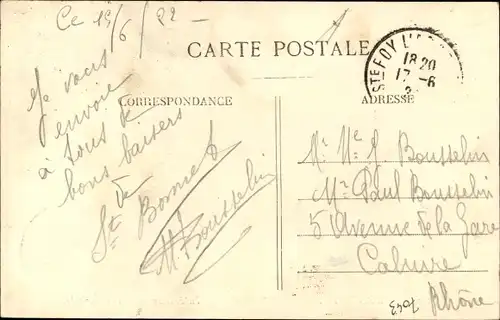 Ce 15/6/22
CARTE POSTALE
STE FOY L'AR
18 20
17 - 6
CORRESPONDANCE
ADRESSE
Je vous
envoie
à tous de
bons baisers
de
St. Bonnet
M Bousselin
Mr. Me. J. Bousselin
Mr Paul Bousselin
5 Avenue de la Gare
Caluire
Rhône
7043